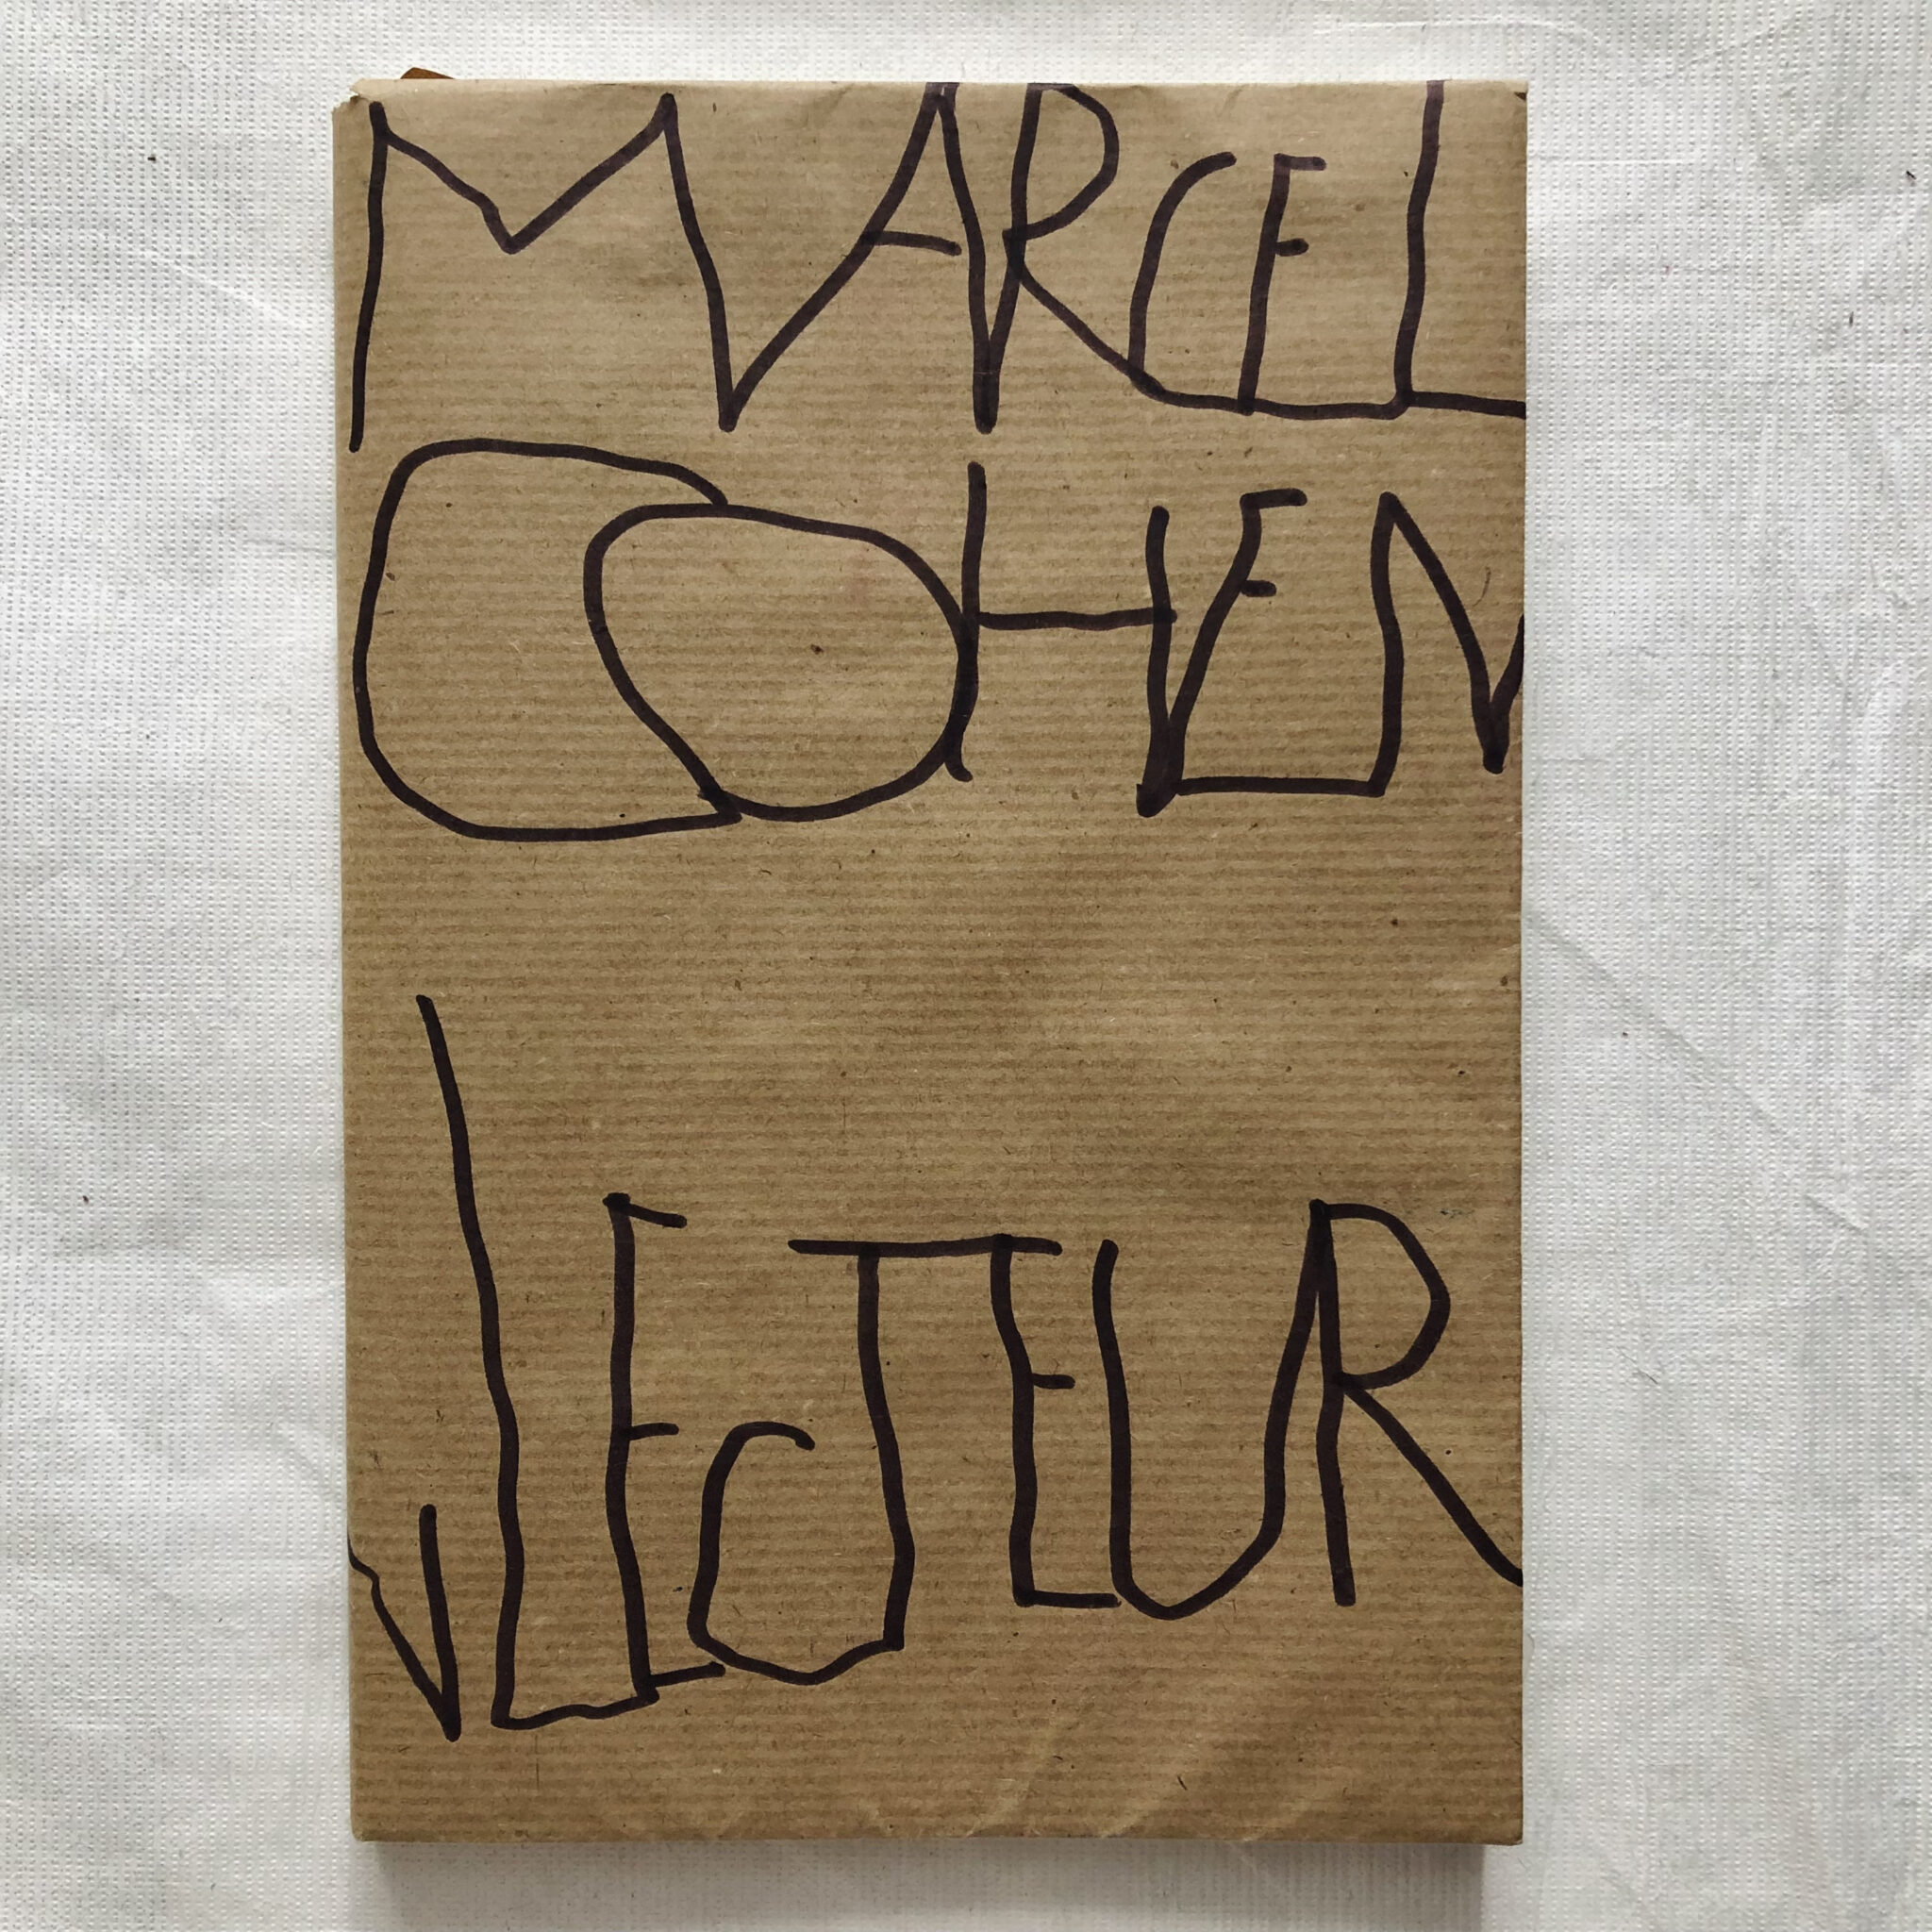 MARCEL
COHEN
LECTEUR